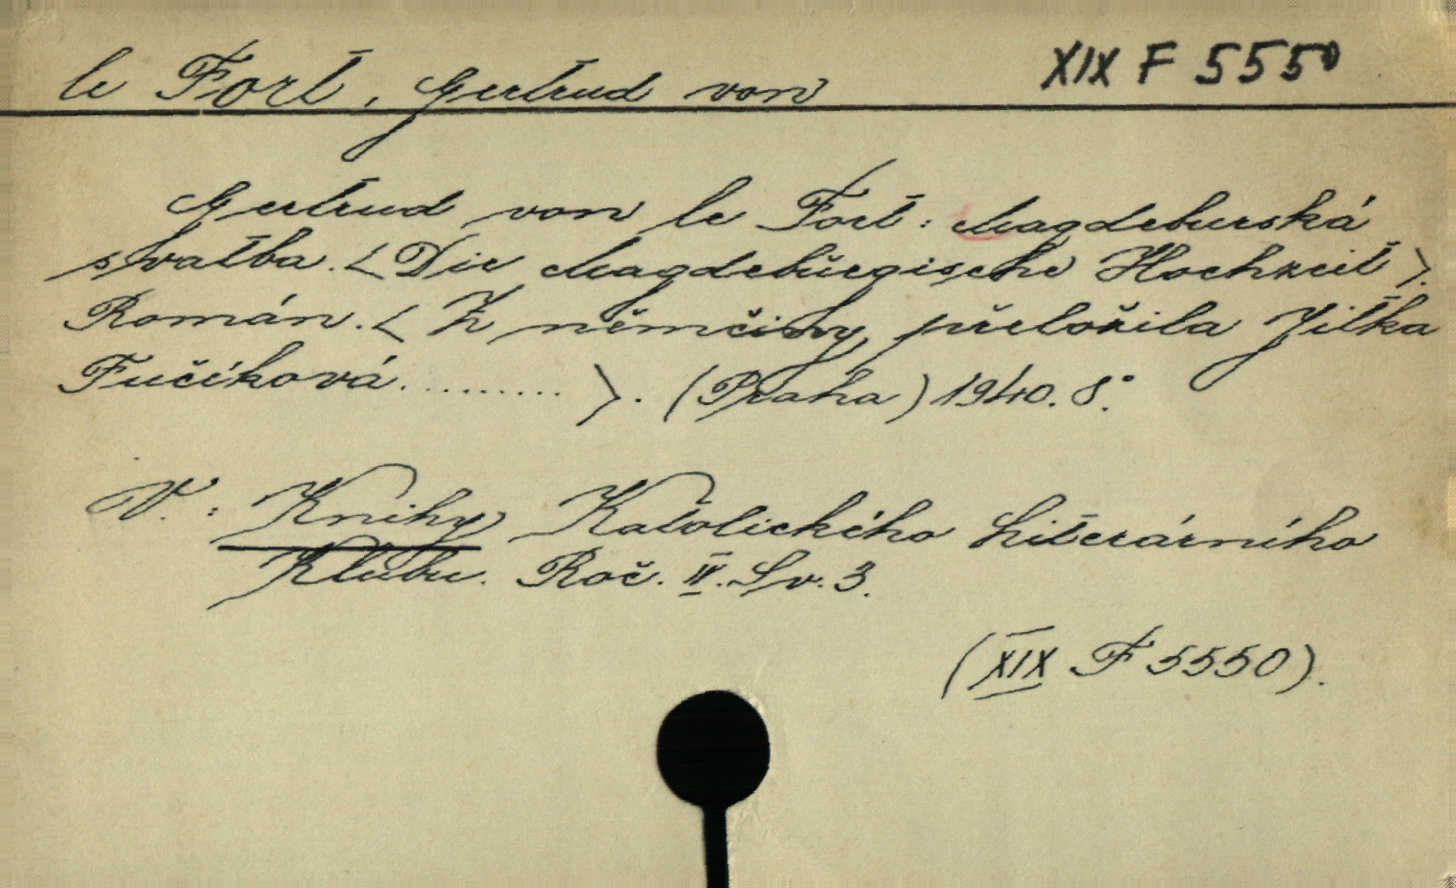 le Fort, Gertrud von
XIX F 5550
Gertrud von le Fort: Magdeburská
svatba. <Die Magdebürgische Hochzeit>.
Román. <Z němčiny přeložila Jitka
Fučíková..........>. (Praha) 1940. 8°.
V.: Knihy Katolického Literárního
Klubu. Roč. IV. Sv. 3.
(XIX F 5550).